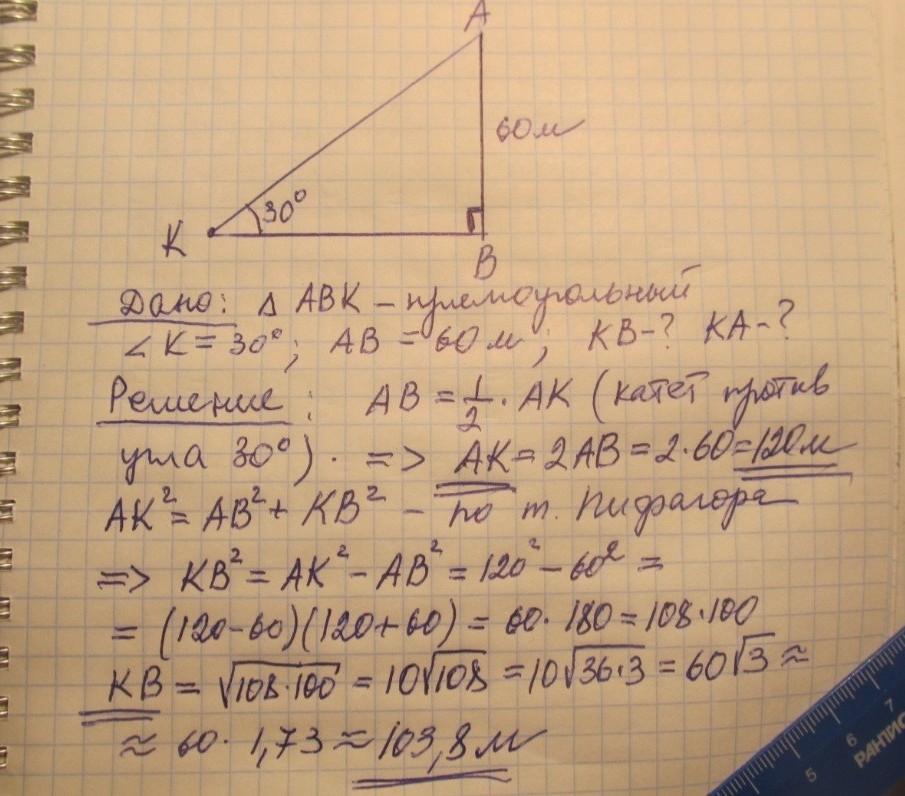 A
60м
30°
K
B
Дано: Δ ABK – прямоугольный
∠K = 30°; AB = 60 м; KB-? KA-?
Решение: AB = 1/2 · AK (катет против
угла 30°). => AK = 2AB = 2·60 = 120 м
AK² = AB² + KB² – по т. Пифагора
=> KB² = AK² – AB² = 120² – 60² =
= (120-60)(120+60) = 60·180 = 108·100
KB = √(108·100) = 10√108 = 10√(36·3) = 60√3 ≈
≈ 60·1,73 ≈ 103,8 м
5 6 7